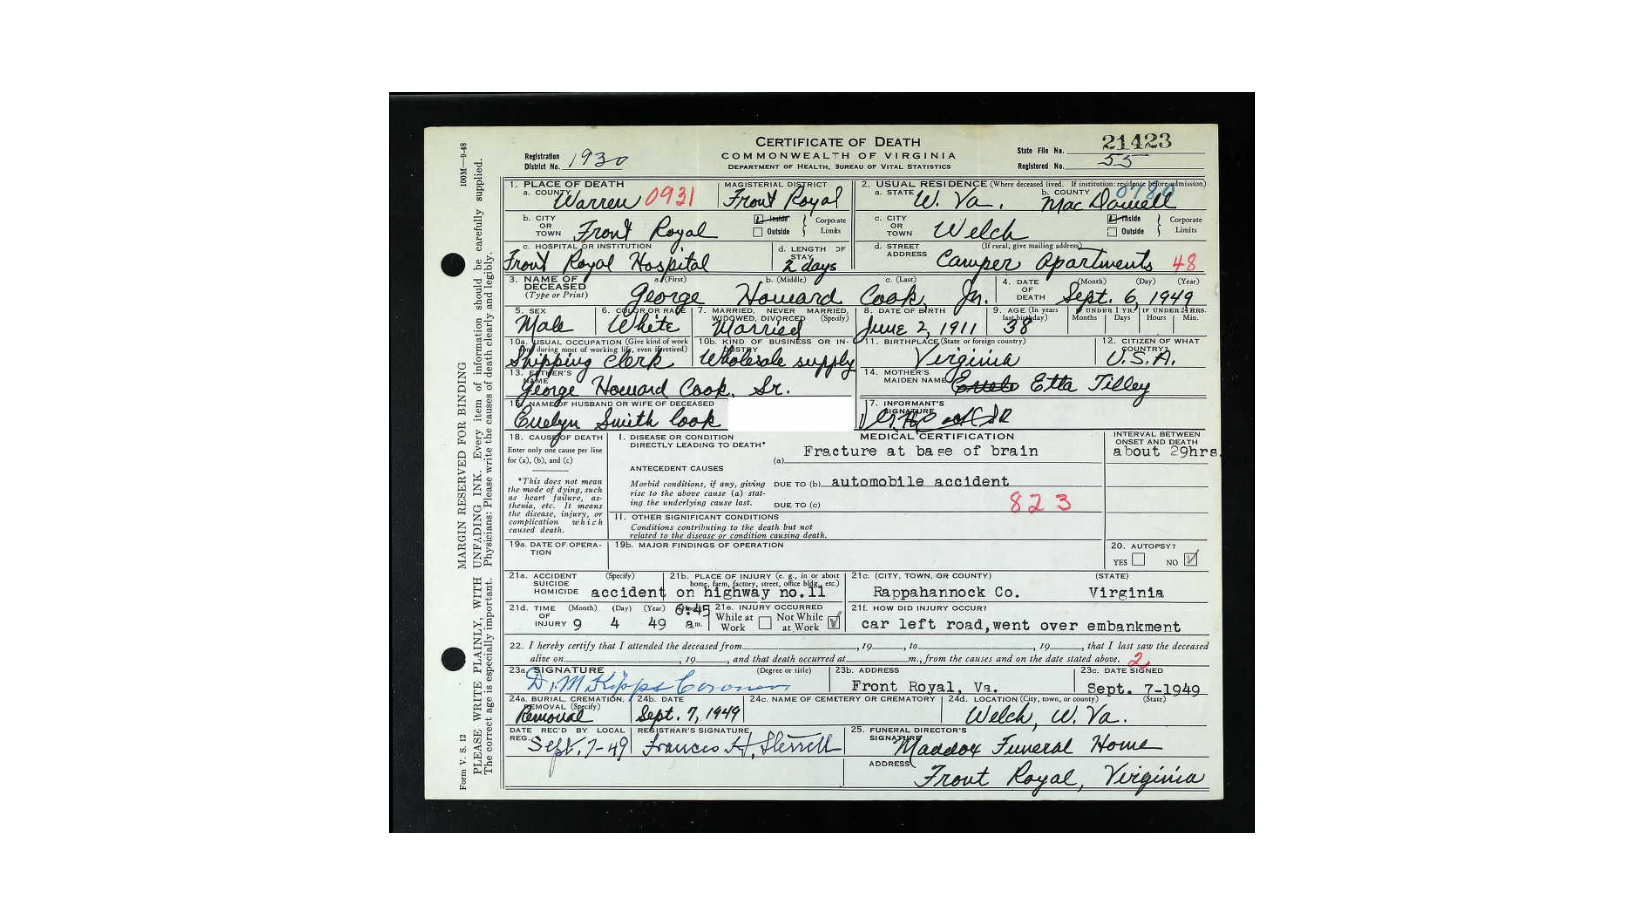 CERTIFICATE OF DEATH
COMMONWEALTH OF VIRGINIA
DEPARTMENT OF HEALTH, BUREAU OF VITAL STATISTICS
Registration District No. 1930
State File No. 21423
Registered No. 55
100M—9-48
MARGIN RESERVED FOR BINDING
PLEASE WRITE PLAINLY, WITH UNFADING INK. Every item of information should be carefully supplied.
The correct age is especially important. Physicians: Please write the causes of death clearly and legibly.
Form V. S. 12
1. PLACE OF DEATH
a. COUNTY Warren 0931
MAGISTERIAL DISTRICT Front Royal
2. USUAL RESIDENCE (Where deceased lived. If institution: residence before admission)
a. STATE W. Va.
b. COUNTY Mac Dowell
b. CITY OR TOWN Front Royal
Inside
Outside
Corporate Limits
c. CITY OR TOWN Welch
Inside
Outside
Corporate Limits
c. HOSPITAL OR INSTITUTION Front Royal Hospital
d. LENGTH OF STAY 2 days
d. STREET ADDRESS (If rural, give mailing address) Camper Apartments 48
3. NAME OF DECEASED (Type or Print)
a. (First) George
b. (Middle) Howard
c. (Last) Cook, Jr.
4. DATE OF DEATH (Month) (Day) (Year) Sept. 6, 1949
5. SEX Male
6. COLOR OR RACE White
7. MARRIED, NEVER MARRIED, WIDOWED, DIVORCED (Specify) Married
8. DATE OF BIRTH June 2, 1911
9. AGE (In years last birthday) 38
IF UNDER 1 YR. Months Days
IF UNDER 24 HRS. Hours Min.
10a. USUAL OCCUPATION (Give kind of work done during most of working life, even if retired) Shipping Clerk
10b. KIND OF BUSINESS OR INDUSTRY Wholesale supply
11. BIRTHPLACE (State or foreign country) Virginia
12. CITIZEN OF WHAT COUNTRY? U.S.A.
13. FATHER'S NAME George Howard Cook, Sr.
14. MOTHER'S MAIDEN NAME Etta Tilley
15. NAME OF HUSBAND OR WIFE OF DECEASED Evelyn Smith Cook
17. INFORMANT'S SIGNATURE G H Cook SR
18. CAUSE OF DEATH
Enter only one cause per line for (a), (b), and (c)
*This does not mean the mode of dying, such as heart failure, asthenia, etc. It means the disease, injury, or complication which caused death.
MEDICAL CERTIFICATION
INTERVAL BETWEEN ONSET AND DEATH
I. DISEASE OR CONDITION DIRECTLY LEADING TO DEATH*
(a) Fracture at base of brain
about 29hrs.
ANTECEDENT CAUSES
Morbid conditions, if any, giving rise to the above cause (a) stating the underlying cause last.
DUE TO (b) automobile accident
DUE TO (c)
823
II. OTHER SIGNIFICANT CONDITIONS
Conditions contributing to the death but not related to the disease or condition causing death.
19a. DATE OF OPERATION
19b. MAJOR FINDINGS OF OPERATION
20. AUTOPSY?
YES NO
21a. ACCIDENT SUICIDE HOMICIDE (Specify) accident
21b. PLACE OF INJURY (e. g., in or about home, farm, factory, street, office bldg., etc.) on highway no.11
21c. (CITY, TOWN, OR COUNTY) (STATE)
Rappahannock Co. Virginia
21d. TIME OF INJURY (Month) (Day) (Year) 9 4 49 6:45 a.m.
21e. INJURY OCCURRED
While at Work
Not While at Work
21f. HOW DID INJURY OCCUR?
car left road,went over embankment
22. I hereby certify that I attended the deceased from , 19 , to , 19 , that I last saw the deceased
alive on , 19 , and that death occurred at m., from the causes and on the date stated above. 2
23a. SIGNATURE (Degree or title) D. M Kipps Coroner
23b. ADDRESS Front Royal, Va.
23c. DATE SIGNED Sept. 7-1949
24a. BURIAL, CREMATION, REMOVAL (Specify) Removal
24b. DATE Sept. 7, 1949
24c. NAME OF CEMETERY OR CREMATORY
24d. LOCATION (City, town, or county) (State) Welch, W. Va.
DATE REC'D BY LOCAL REG. Sept. 7-49
REGISTRAR'S SIGNATURE Frances H. Sterrett
25. FUNERAL DIRECTOR'S SIGNATURE Maddox Funeral Home
ADDRESS Front Royal, Virginia